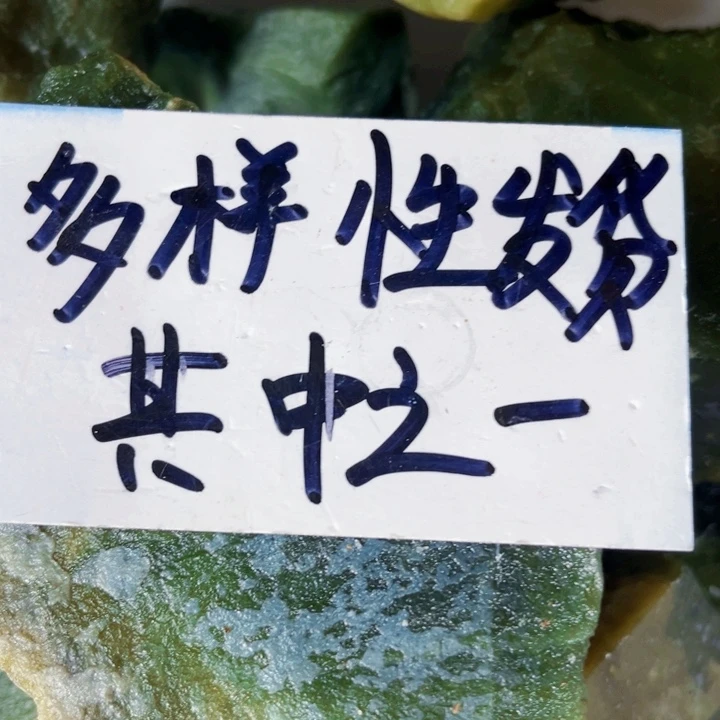 多样性发货
其中之一